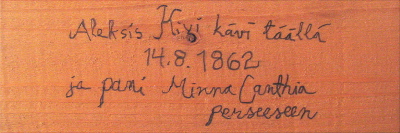 Aleksis Kivi kävi täällä
14.8.1862
ja pani Minna Canthia
perseeseen